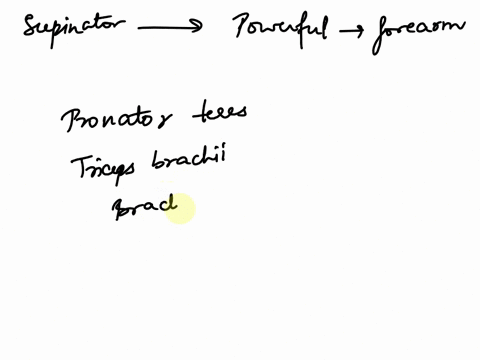 Supinator → Powerful → forearm
Pronator teres
Triceps brachii
Brad